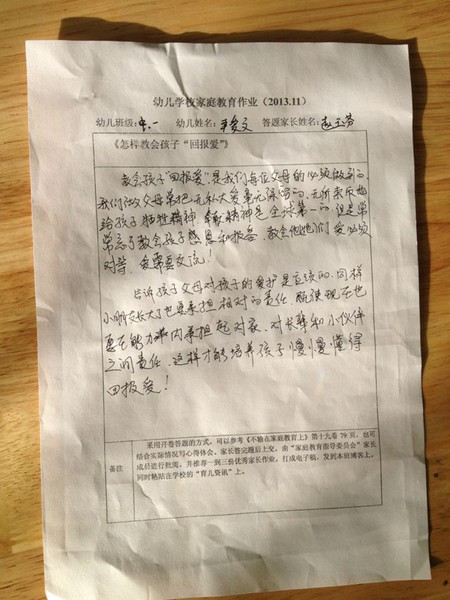 幼儿学校家庭教育作业（2013.11）
幼儿班级：中.一 幼儿姓名： 文 答题家长姓名：赵玉芬
《怎样教会孩子“回报爱”》
教会孩子“回报爱”，是我们每位父母的必须做到的，
我们做父母单把无私大爱毫无保留的，无所求取地
给孩子牺牲精神 精神是全球第一的，但是常
常忘了教会孩子感恩和报答，教会他她们爱必须
对等，爱需要交流！
告诉孩子父母对孩子的爱护是应该的，同样
小 友长大了也要承担相对的责任 现在也
要在能力 内承担起对家、对长辈和小伙伴
之间责任、这样才能培养孩子慢慢懂得
回报爱！
备注
采用开卷答题的方式，可以参考《不输在家庭教育上》第十九卷79页，也可
结合实际情况写心得体会。家长答完题后上交，由“家庭教育指导委员会”家长
成员进行批阅，并推荐一到三份优秀家长作业，打成电子稿，发到本班博客上，
同时粘贴在学校的“育儿资讯”上。